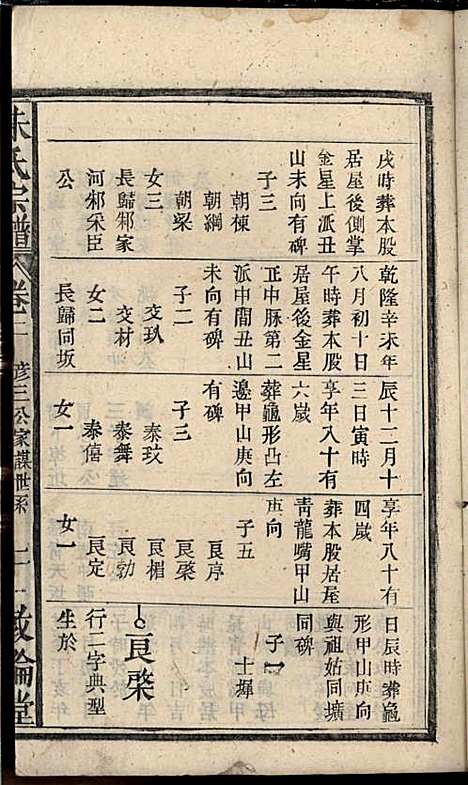 戌時葬本股
居屋後側掌
金星上派丑
山未向有碑
子三
朝棟
朝綱
朝梁
女三
長歸邾家
河邾采臣
公
乾隆辛未年
八月初十日
午時葬本股
居屋後金星
正中脉第二
派中間丑山
未向有碑
子二
交玖
交材
女二
長歸同坂
辰十二月十
三日寅時
享年八十有
六歲
葬龜形凸左
邊甲山庚向
有碑
子三
泰玟
泰舞
泰僖
女一
享年八十有
四歲
葬本股居屋
青龍嘴甲山
庚向
子五
良序
良棨
良楣
良勃
良定
女一
日辰時葬龜
形甲山庚向
與祖姑同壙
同碑
子一
士墀
良棨
行二字典型
生於
朱氏宗譜
卷二
彦三公家謀世系
敦倫堂